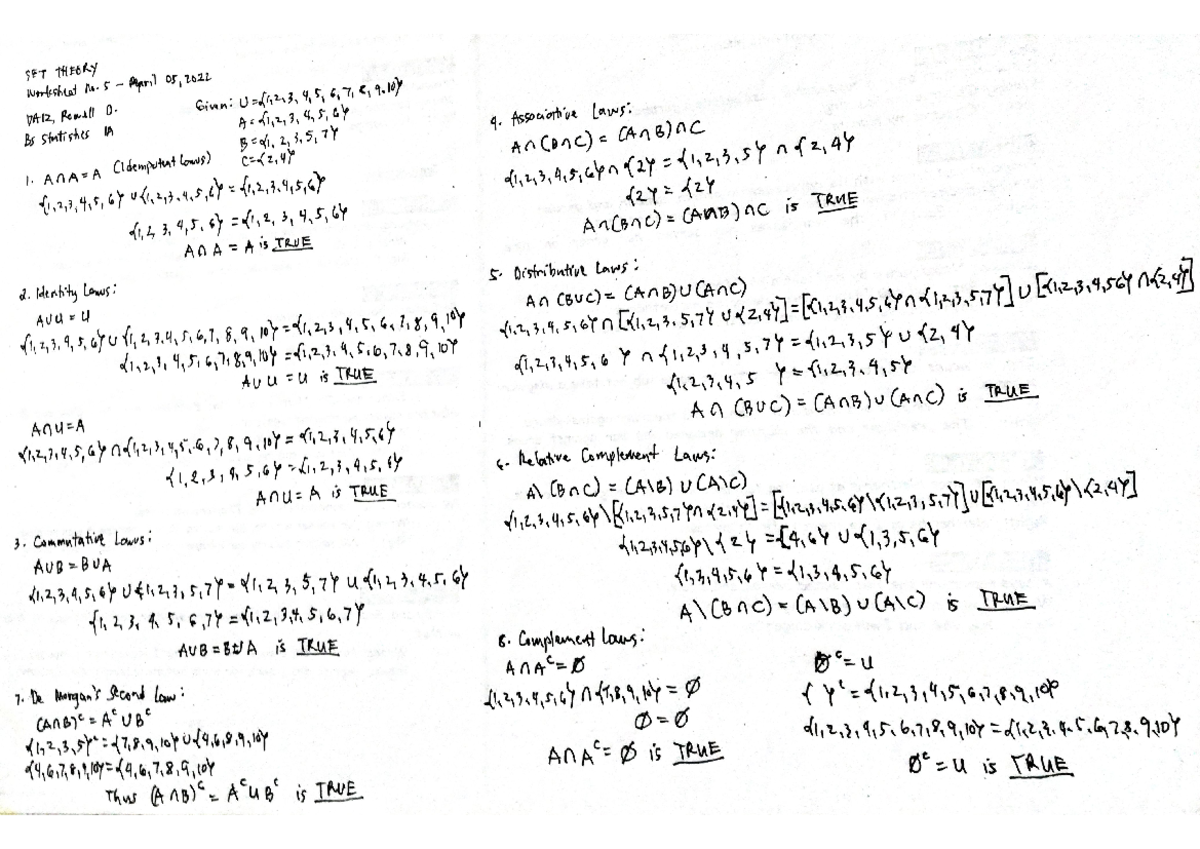 SET THEORY
Worksheet No. 5 - April 05, 2022
Given: U = {1,2,3,4,5,6,7,8,9,10}
D.
A = {1,2,3,4,5,6}
BS Statistics 1A
B = {1,2,3,5,7}
C = {2,4}
1. A∩A = A (Idempotent Laws)
{1,2,3,4,5,6} ∪ {1,2,3,4,5,6} = {1,2,3,4,5,6}
{1,2,3,4,5,6} = {1,2,3,4,5,6}
A∩A = A is TRUE
2. Identity Laws:
A∪U = U
{1,2,3,4,5,6} ∪ {1,2,3,4,5,6,7,8,9,10} = {1,2,3,4,5,6,7,8,9,10}
{1,2,3,4,5,6,7,8,9,10} = {1,2,3,4,5,6,7,8,9,10}
A∪U = U is TRUE
A∩U = A
{1,2,3,4,5,6} ∩ {1,2,3,4,5,6,7,8,9,10} = {1,2,3,4,5,6}
{1,2,3,4,5,6} = {1,2,3,4,5,6}
A∩U = A is TRUE
3. Commutative Laws:
A∪B = B∪A
{1,2,3,4,5,6} ∪ {1,2,3,5,7} = {1,2,3,5,7} ∪ {1,2,3,4,5,6}
{1,2,3,4,5,6,7} = {1,2,3,4,5,6,7}
A∪B = B∪A is TRUE
7. De Morgan's Second Law:
(A∩B)ᶜ = Aᶜ∪Bᶜ
{1,2,3,5}ᶜ = {7,8,9,10} ∪ {4,6,8,9,10}
{4,6,7,8,9,10} = {4,6,7,8,9,10}
Thus (A∩B)ᶜ = Aᶜ∪Bᶜ is TRUE
4. Associative Laws:
A∩(B∩C) = (A∩B)∩C
{1,2,3,4,5,6} ∩ {2} = {1,2,3,5} ∩ {2,4}
{2} = {2}
A∩(B∩C) = (A∩B)∩C is TRUE
5. Distributive Laws:
A∩(B∪C) = (A∩B)∪(A∩C)
{1,2,3,4,5,6} ∩ [{1,2,3,5,7} ∪ {2,4}] = [{1,2,3,4,5,6} ∩ {1,2,3,5,7}] ∪ [{1,2,3,4,5,6} ∩ {2,4}]
{1,2,3,4,5,6} ∩ {1,2,3,4,5,7} = {1,2,3,5} ∪ {2,4}
{1,2,3,4,5} = {1,2,3,4,5}
A∩(B∪C) = (A∩B)∪(A∩C) is TRUE
6. Relative Complement Laws:
A\(B∩C) = (A\B)∪(A\C)
{1,2,3,4,5,6} \ [{1,2,3,5,7} ∩ {2,4}] = [{1,2,3,4,5,6} \ {1,2,3,5,7}] ∪ [{1,2,3,4,5,6} \ {2,4}]
{1,2,3,4,5,6} \ {2} = {4,6} ∪ {1,3,5,6}
{1,3,4,5,6} = {1,3,4,5,6}
A\(B∩C) = (A\B)∪(A\C) is TRUE
8. Complement Laws:
A∩Aᶜ = Ø
{1,2,3,4,5,6} ∩ {7,8,9,10} = Ø
Ø = Ø
A∩Aᶜ = Ø is TRUE
Øᶜ = U
{ }ᶜ = {1,2,3,4,5,6,7,8,9,10}
{1,2,3,4,5,6,7,8,9,10} = {1,2,3,4,5,6,7,8,9,10}
Øᶜ = U is TRUE